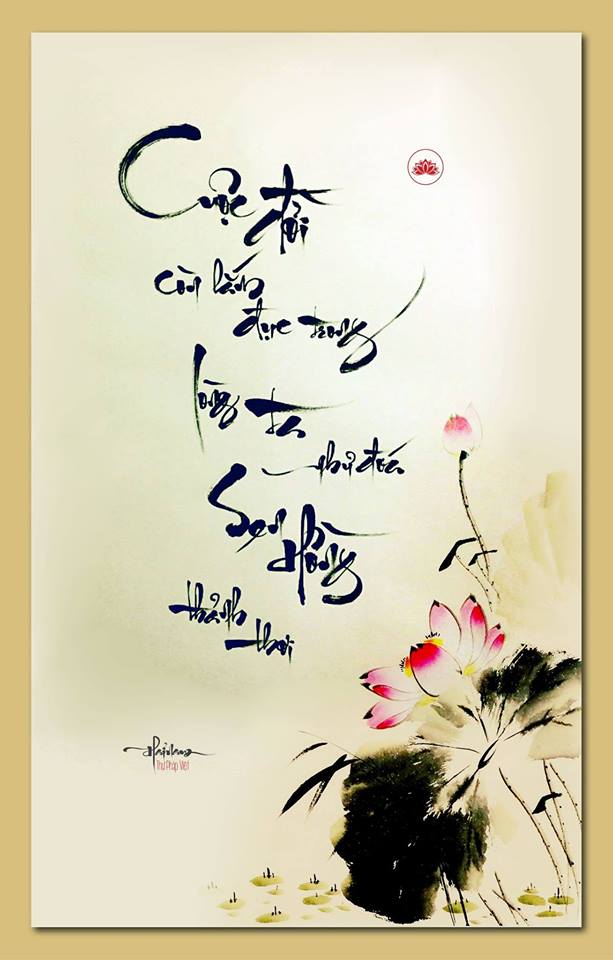 Cuộc đời
còn lắm
đục trong
lòng ta
như đoá
Sen Hồng
thảnh
thơi
Thư Pháp Việt